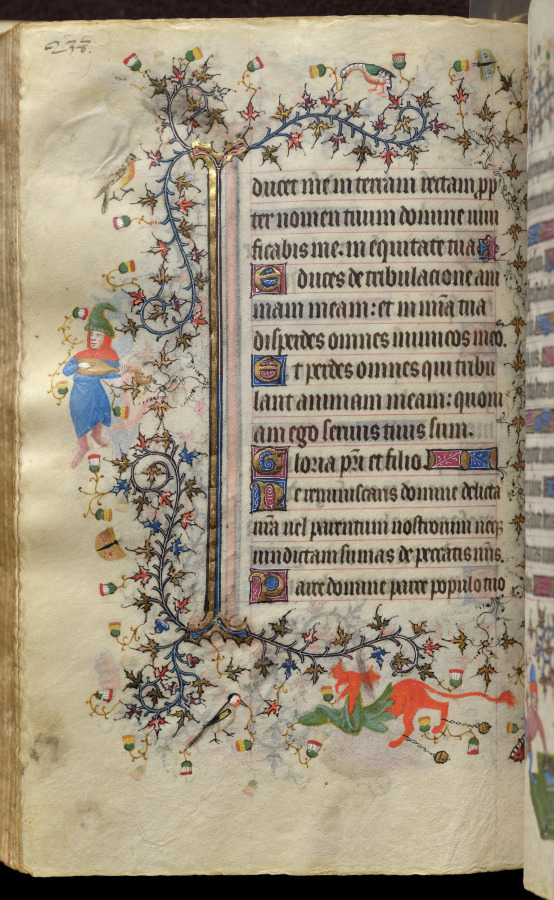 238.
ducet me in terram rectam ꝓp
ter nomen tuum domine uiui
ficabis me. in equitate tua
Educes de tribulacione ani
mam meam: et in mĩa tua
disperdes omnes inimicos meo.
Et perdes omnes qui tribu
lant animam meam: quoni
am ego seruus tuus sum.
Gloria pri et filio.
Ne reminiscaris domine delicta
nr̃a uel parentum nostrorum neq;
uindictam sumas de peccatis nr̃is.
Parce domine parce populo tuo